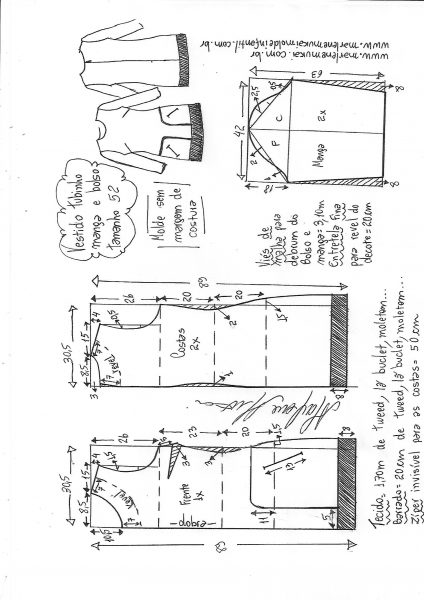 Vestido tubinho
manga e bolsos
tamanho 52
Molde sem
margem de
costura
www.marlenemukai.com.br
www.marlenemukaimoldeinfantil.com.br
63
42
18
2,5
0,5
2
C
F
2x
Manga
8
8
Viés de
malha para
debrum do
Bolso e
manga = 3,10m
Entretela fina
para revel do
decote = 20cm
89
26
20
20
30,5
8,5
15
4
3
7
revel
0,5
2
3
1,5
Costas
2x
8
Marlene Mukai
89
26
23
20
30,5
8,5
15
4
10,5
7
7
revel
3
3
1,5
Frente
1x
dobra
17
11
5
8
Tecido = 1,70m de tweed, lã buclet, moletom...
Barrado = 20cm de tweed, lã buclet, moletom...
Ziper invisível para as costas = 50cm